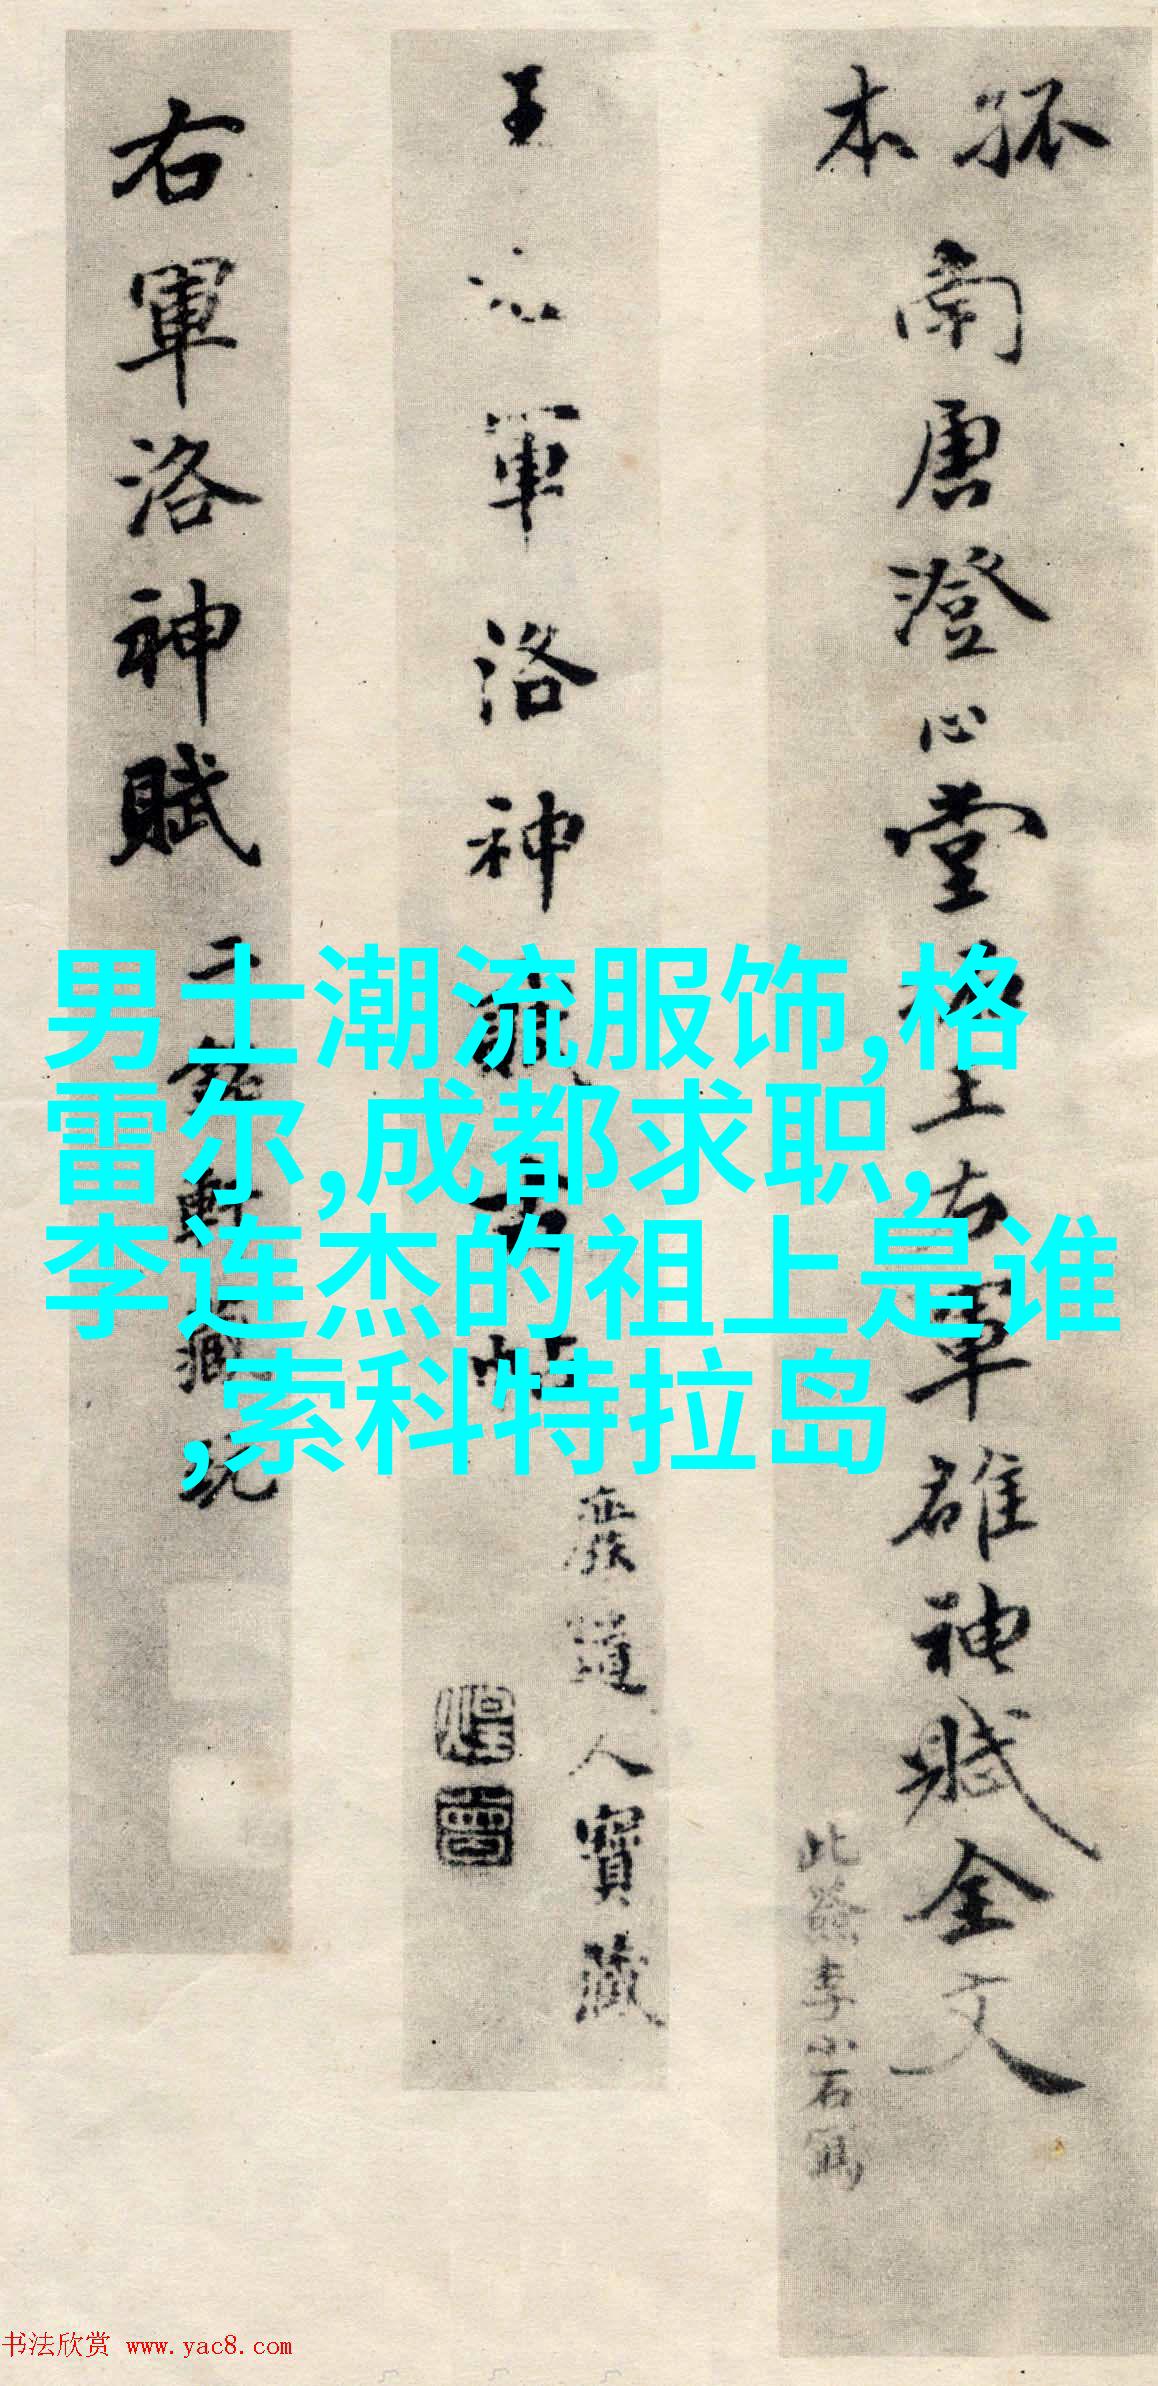 孤本
南唐澄心堂 右軍雒神賦全文
此 李小石
王 軍洛神 帖
道人寶藏
右軍洛神賦
軒藏玩
男士潮流服饰,格
雷尔,成都求职,
李连杰的祖上是谁
,索科特拉岛
书法欣赏 www.yac8.com